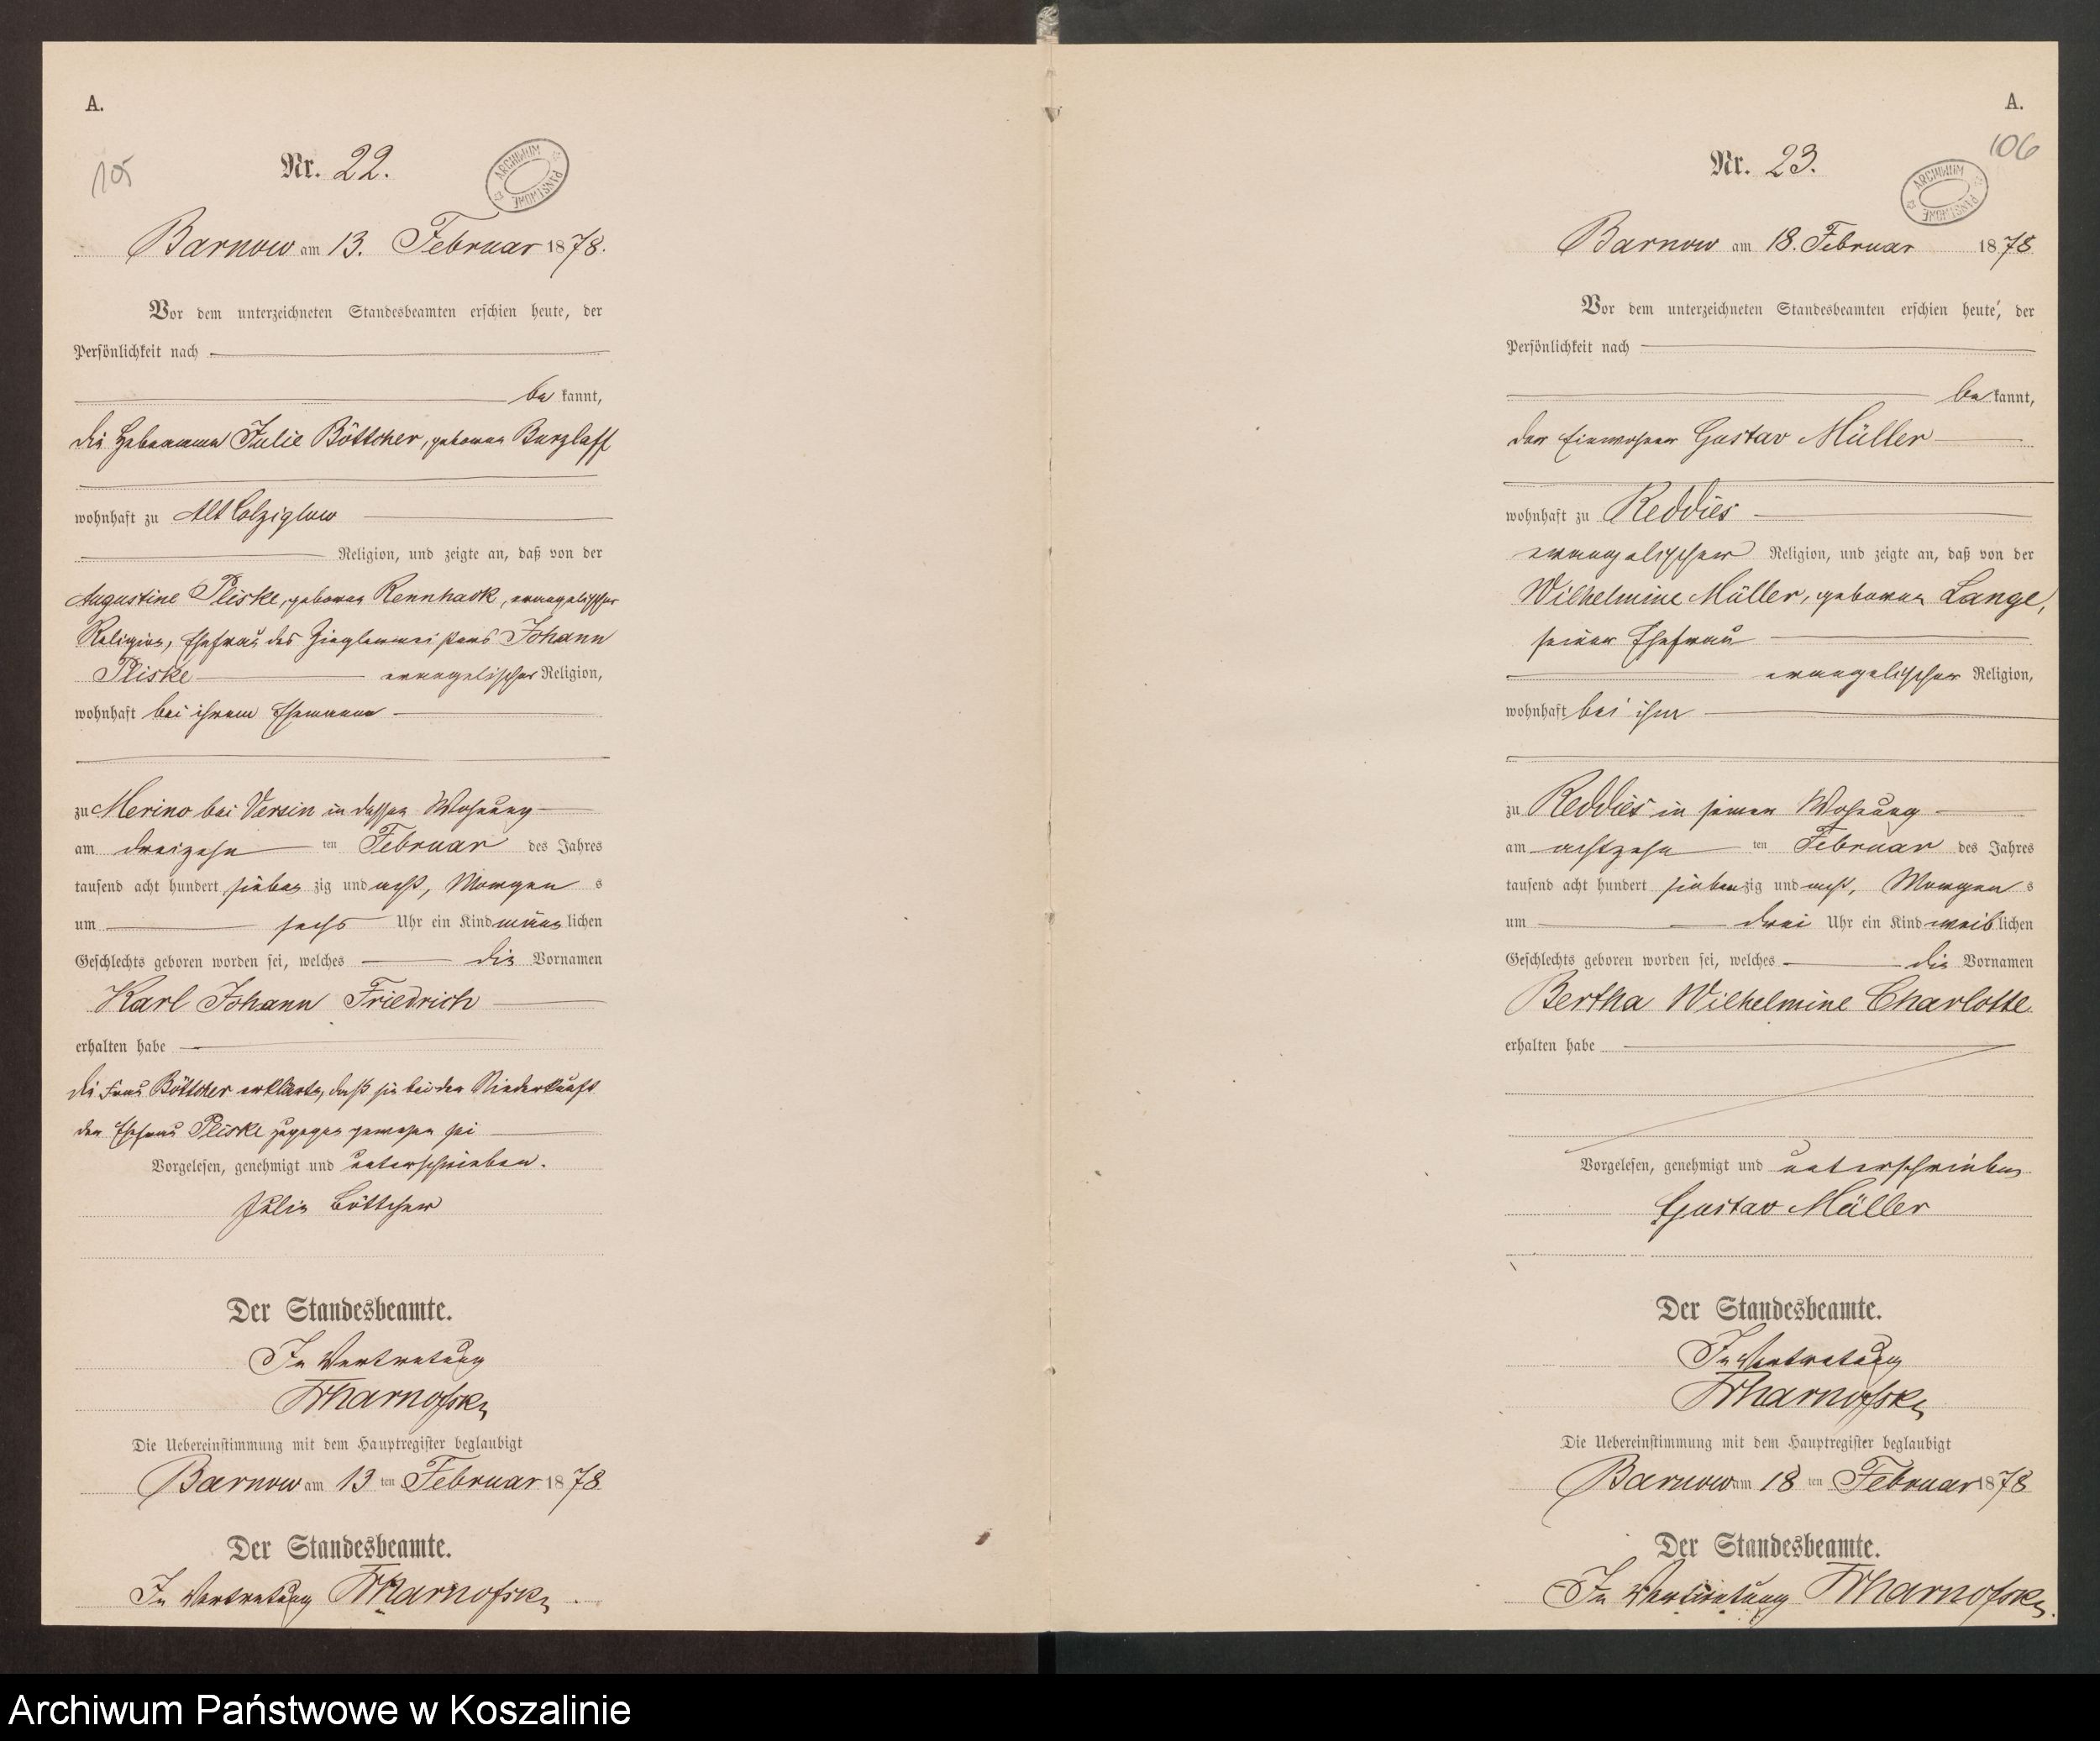 A.
105
Nr. 22.
ARCHIWUM PAŃSTWOWE
Barnow am 13. Februar 1878.
Vor dem unterzeichneten Standesbeamten erschien heute, der
Persönlichkeit nach
bekannt,
die Hebamme Julie Böttcher, geborene Burzlaff
wohnhaft zu Alt Colziglow
Religion, und zeigte an, daß von der
Augustine Pliske, geborene Rennhack, evangelischer
Religion, Ehefrau des Zieglermeisters Johann
Pliske evangelischer Religion,
wohnhaft bei ihrem Ehemann
zu Merino bei Versin in dessen Wohnung
am dreizehn ten Februar des Jahres
tausend acht hundert siebenzig und acht, Morgens
um sechs Uhr ein Kind männlichen
Geschlechts geboren worden sei, welches die Vornamen
Karl Johann Friedrich
erhalten habe
die Frau Böttcher erklärte, daß sie bei der Niederkunft
der Ehefrau Pliske zugegen gewesen sei
Vorgelesen, genehmigt und unterschrieben.
Julie Böttcher
Der Standesbeamte.
In Vertretung
Die Uebereinstimmung mit dem Hauptregister beglaubigt
Barnow am 13 ten Februar 1878
Der Standesbeamte.
In Vertretung
A.
106
Nr. 23.
ARCHIWUM PAŃSTWOWE
Barnow am 18. Februar 1878
Vor dem unterzeichneten Standesbeamten erschien heute, der
Persönlichkeit nach
bekannt,
der Einwohner Gustav Müller
wohnhaft zu Reddies
evangelischer Religion, und zeigte an, daß von der
Wilhelmine Müller, geborene Lange,
seiner Ehefrau
evangelischer Religion,
wohnhaft bei ihm
zu Reddies in seiner Wohnung
am achtzehn ten Februar des Jahres
tausend acht hundert siebenzig und acht, Morgens
um drei Uhr ein Kind weiblichen
Geschlechts geboren worden sei, welches die Vornamen
Bertha Wilhelmine Charlotte
erhalten habe
Vorgelesen, genehmigt und unterschrieben
Gustav Müller
Der Standesbeamte.
In Vertretung
Die Uebereinstimmung mit dem Hauptregister beglaubigt
Barnow am 18 ten Februar 1878
Der Standesbeamte.
In Vertretung
Archiwum Państwowe w Koszalinie